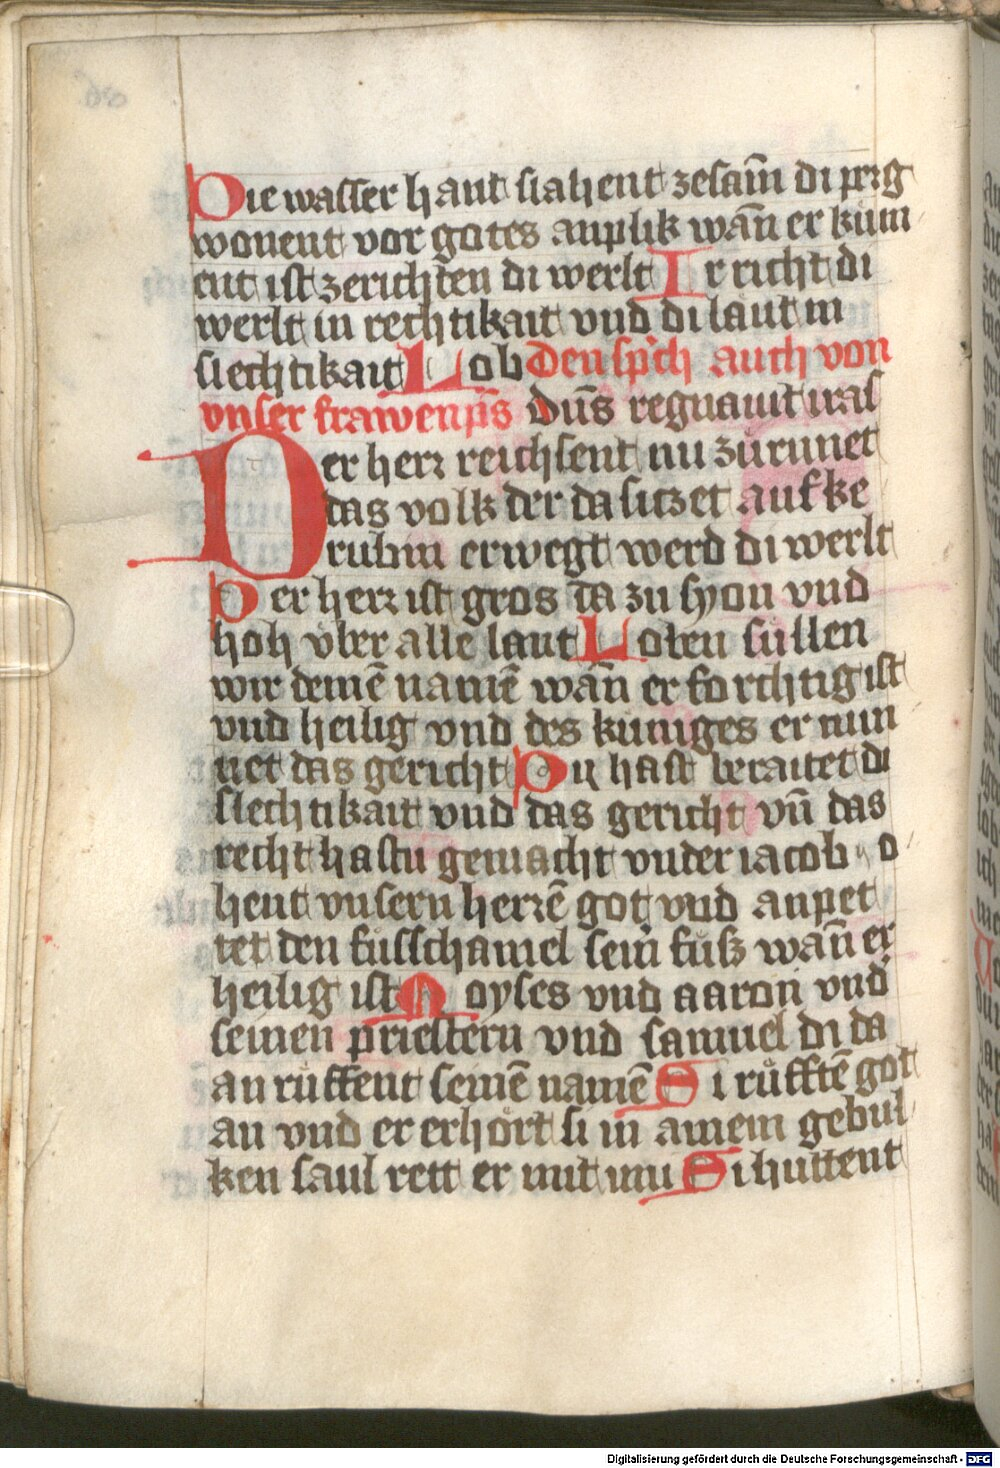 Die wasser hant slahent zesam̄ di perg
wonent vor gotes anplik wan̄ er kum
ent ist zerichten di werlt Er richt di
werlt in rechtikait vnd di laut in
slechtikait Lob den sp̄ch auch von
vnser frawen ps̄ Dn̄s regnauit iras
Der herr reichsent nu zůrnnet
das volk der da siczet auf ke
rubin erwegt werd di werlt
Der herr ist gros da zu syon vnd
hoh vͤber alle laut Loben sullen
wir deinē namē wan̄ er forchtig ist
vnd heilig vnd des kuniges er nun
net das gericht Du hast beraitet di
slechtikait vnd das gericht vn̄ das
recht hastu gemacht vnder iacob
hent vnsern herrē got vnd anpet
tet den fusschamel sein fuß wan̄ er
heilig ist Moyses vnd aaron vnd
seinen priestern vnd samuel di da
an ruͤffent seinē namē Si ruͤfftē got
an vnd er erhoͤrt si in ainem gebul
ken saul rett er mit inn Si huttent
Digitalisierung gefördert durch die Deutsche Forschungsgemeinschaft - DFG